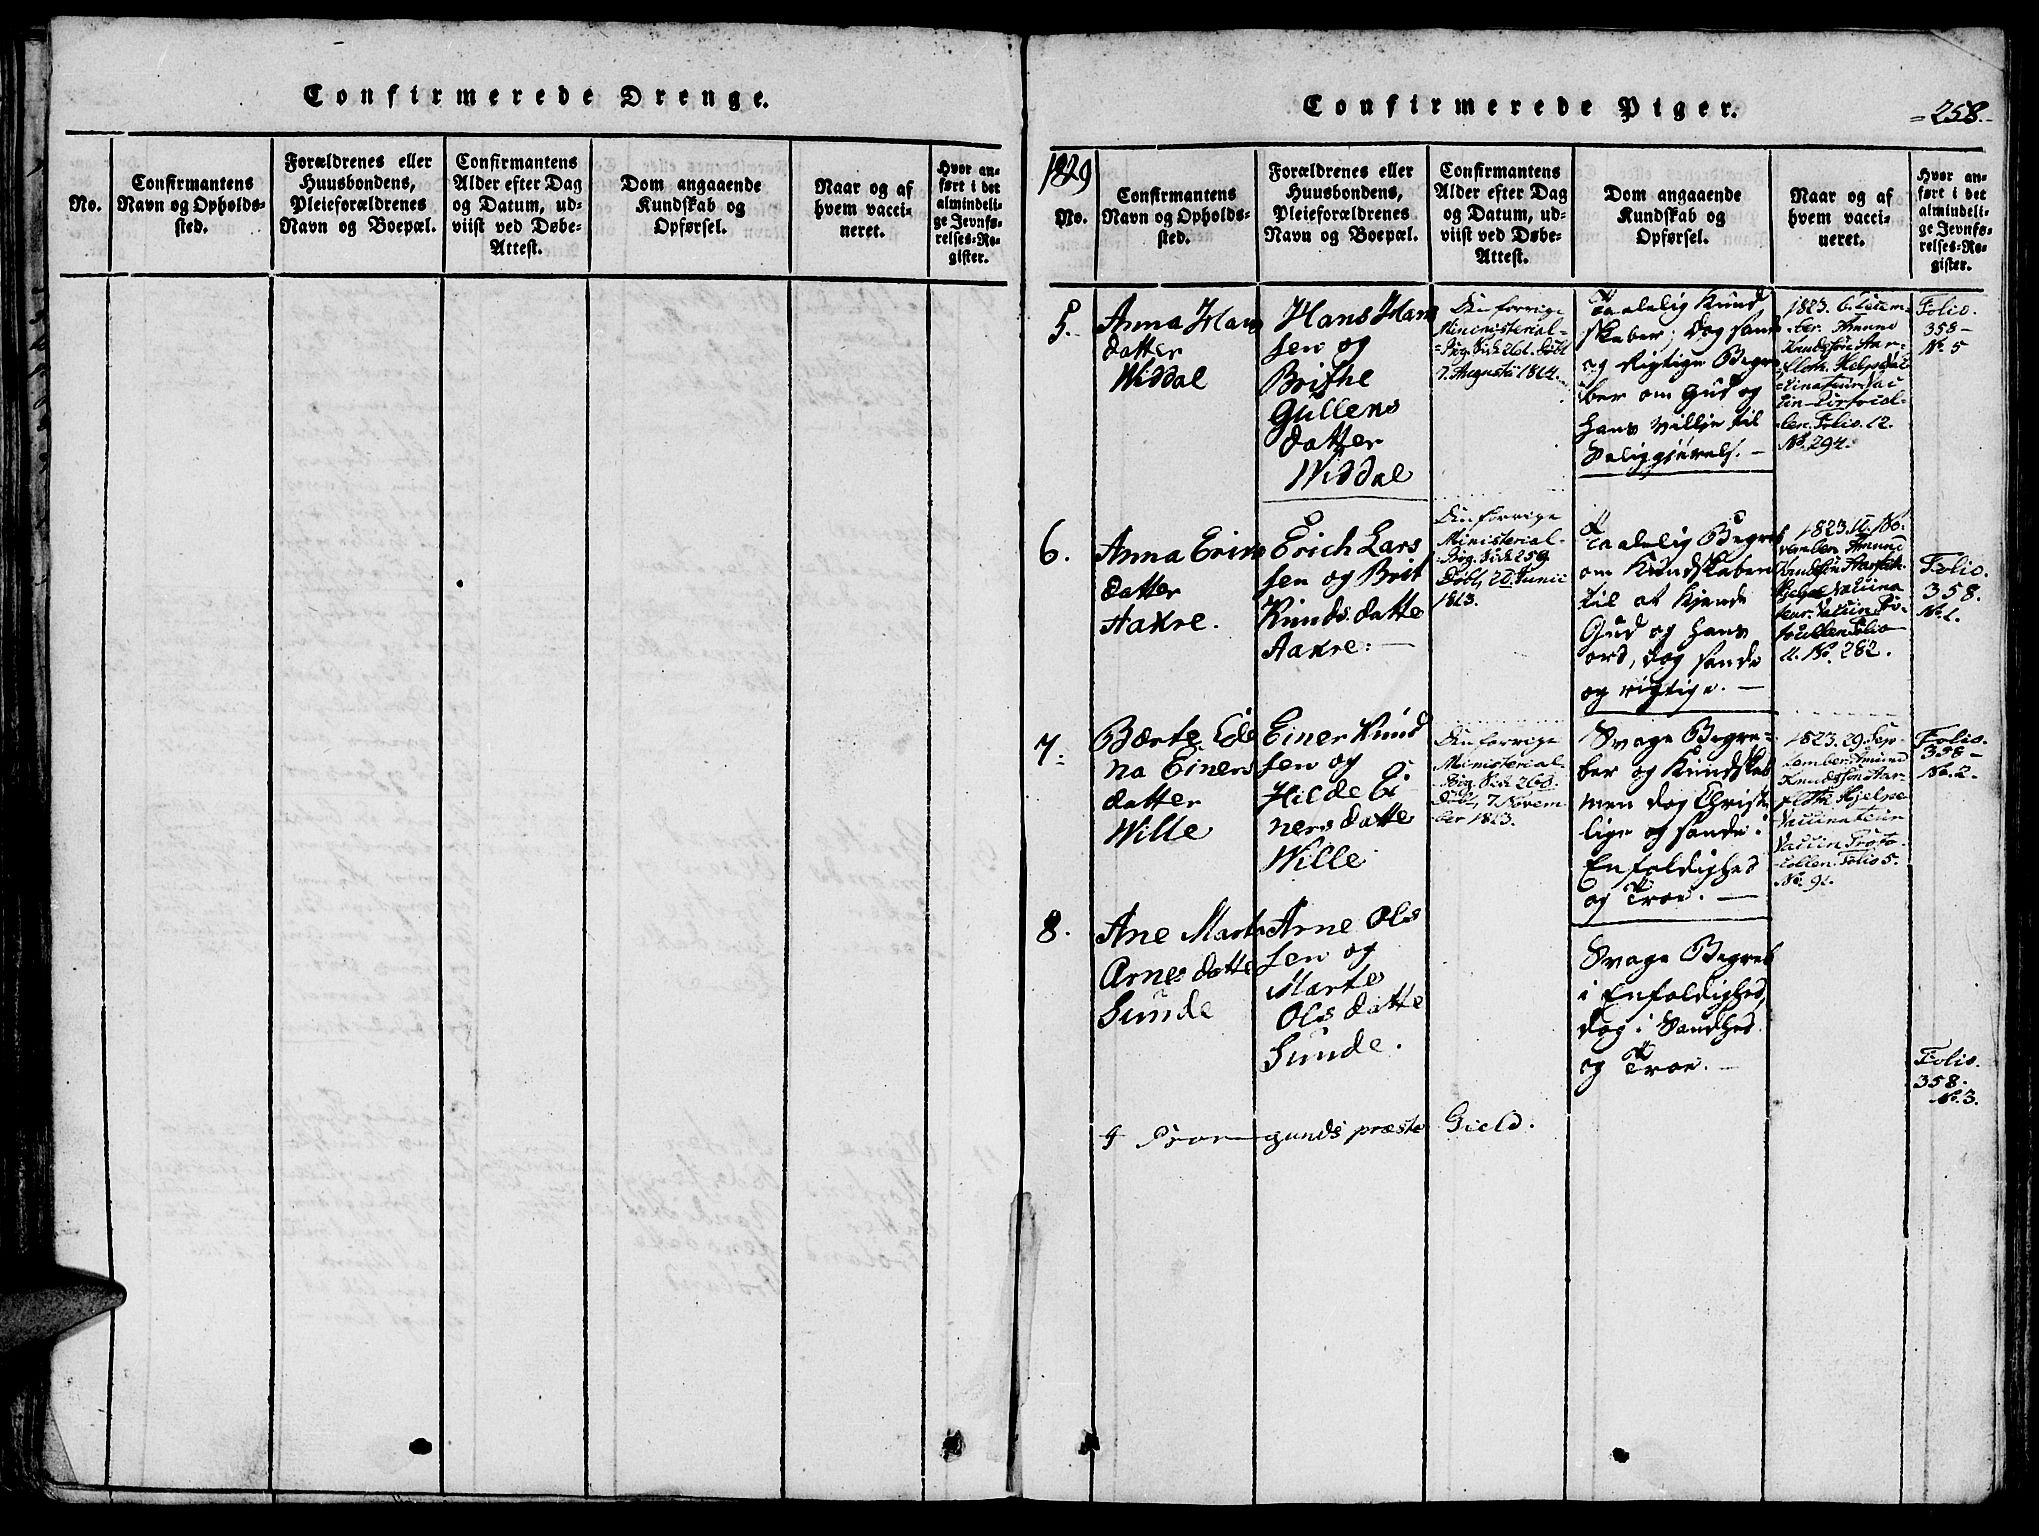 Confirmerede Drenge.
No.
Confirmantens
Navn og Opholds-
sted.
Forældrenes eller
Huusbondens,
Pleieforældrenes
Navn og Boepæl.
Confirmantens
Alder efter Dag
og Datum, ud-
viist ved Døbe-
Attest.
Dom angaaende
Kundskab og
Opførsel.
Naar og af
hvem vacci-
neret.
Hvor an-
ført i det
almindeli-
ge Jevnfø-
relses-Re-
gister.
Confirmerede Piger.
258.
1829
No.
Confirmantens
Navn og Opholds-
sted.
Forældrenes eller
Huusbondens,
Pleieforældrenes
Navn og Boepæl.
Confirmantens
Alder efter Dag
og Datum, ud-
viist ved Døbe-
Attest.
Dom angaaende
Kundskab og
Opførsel.
Naar og af
hvem vacci-
neret.
Hvor an-
ført i det
almindeli-
ge Jevnfø-
relses-Re-
gister.
5.
Anna Hans
datter
Widdal
Hans Hans
sen og
Brithe
Gullens
datter
Widdal
Den forrige
Ministerial-
Bog. Side 261. Døbt
7. Augusti 1814.
Taalelig Kund
skaber; dog sande
og Rigtige Begre
ber om Gud og
hans Villie til
Saliggiørelse. -
1823. 6.
ber. Amund
Knudssøn Aar-
floth. Hjelpevac
cinateur Vac
cin-Protocol-
len. Folio. 12.
No. 294.
Folio.
358-
No. 5
6.
Anna Erics
datter
Aakre.
Erich Lars
sen og Brit
Knuds datte
Aakre: -
Den forrige
Ministerial-
Bog. Side 259
Døbt, 20. Junii
1813.
Taalelig Begreb
om Kundskaben
til at kjende
Gud og hans
ord, dog sande
og rigtige. -
1823. 11. No.
vember. Amund
Knudssøn Aarfloth
Hjelpe Vaccina
teur. Vaccin. Pro-
tocollen Folio
11. No. 282.
Folio.
358.
No. 1.
7.
Bærte Ele
na Einers
datter
Wille
Einer Knud
sen og
Hilde Ei
ners datte
Wille
Den forrige
Ministerial-
Bog. Side 260.
Døbt, 7. Novem
ber 1813.
Svage Begre-
ber og Kundskab
men dog Christe
lige og sande i
Enfoldighed
og Troe. -
1823. 29. Sep-
tember. Amund
Knudssøn Aar-
floth Hjelpe
Vaccinateur
Vaccin Proto-
collen. Folio 5.
No. 91.
Folio.
358-
No. 2.
8.
Ane Marte
Arnes datte
Sunde
Arne Ols
sen og
Marte
Ols datte
Sunde.
Svage Begreb
i Enfoldighed,
dog i Sandhed
og Troe. -
Folio.
358.
No. 3.
gunds præste Gield.